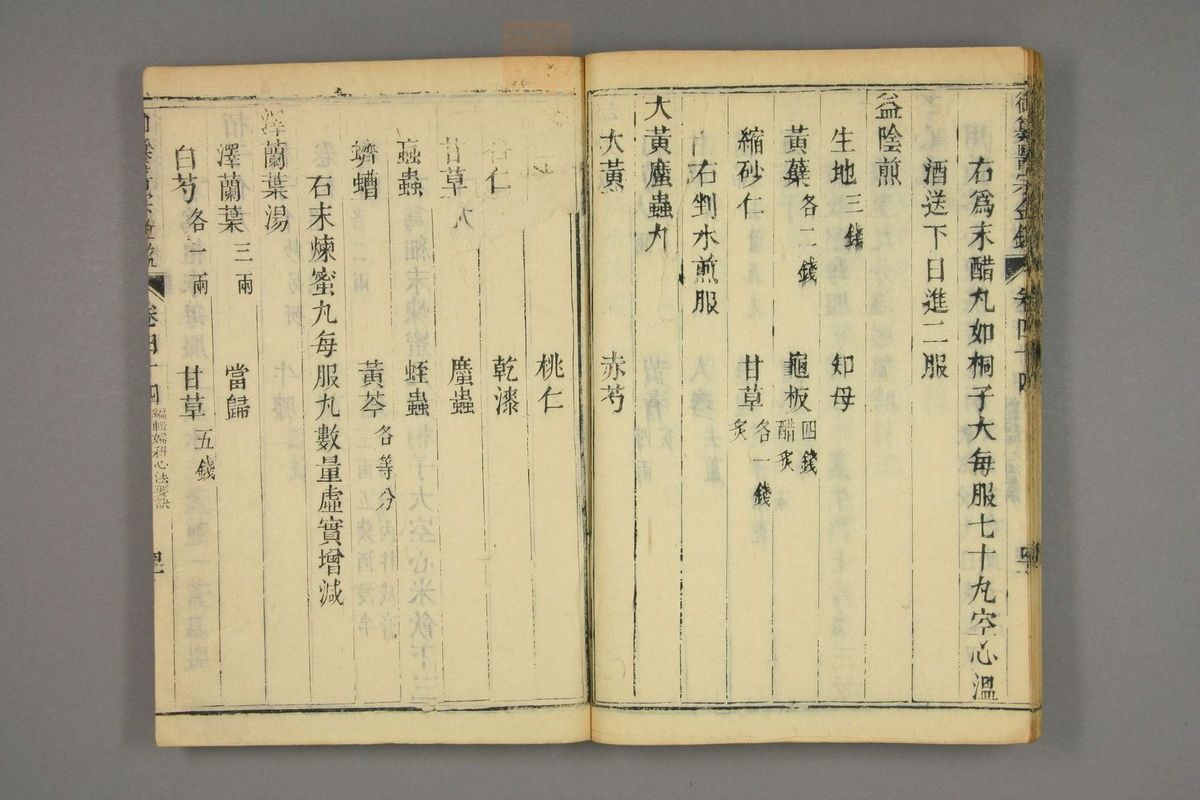 御纂醫宗金鑑 卷四十四
右爲末醋丸如桐子大每服七十九空心溫
酒送下日進二服
益陰煎
生地三錢 知母
黃蘗各二錢 龜板四錢醋炙
縮砂仁 甘草各一錢炙
右剉水煎服
大黃䗪蟲丸
大黃 赤芍
桃仁
杏仁 乾漆
甘草 䗪蟲
蝱蟲 蛭蟲
蠐螬 黃芩各等分
右末煉蜜丸每服丸數量虛實增減
澤蘭葉湯
澤蘭葉三兩 當歸
白芍各一兩 甘草五錢
卷四十四 編輯婦科心法要訣